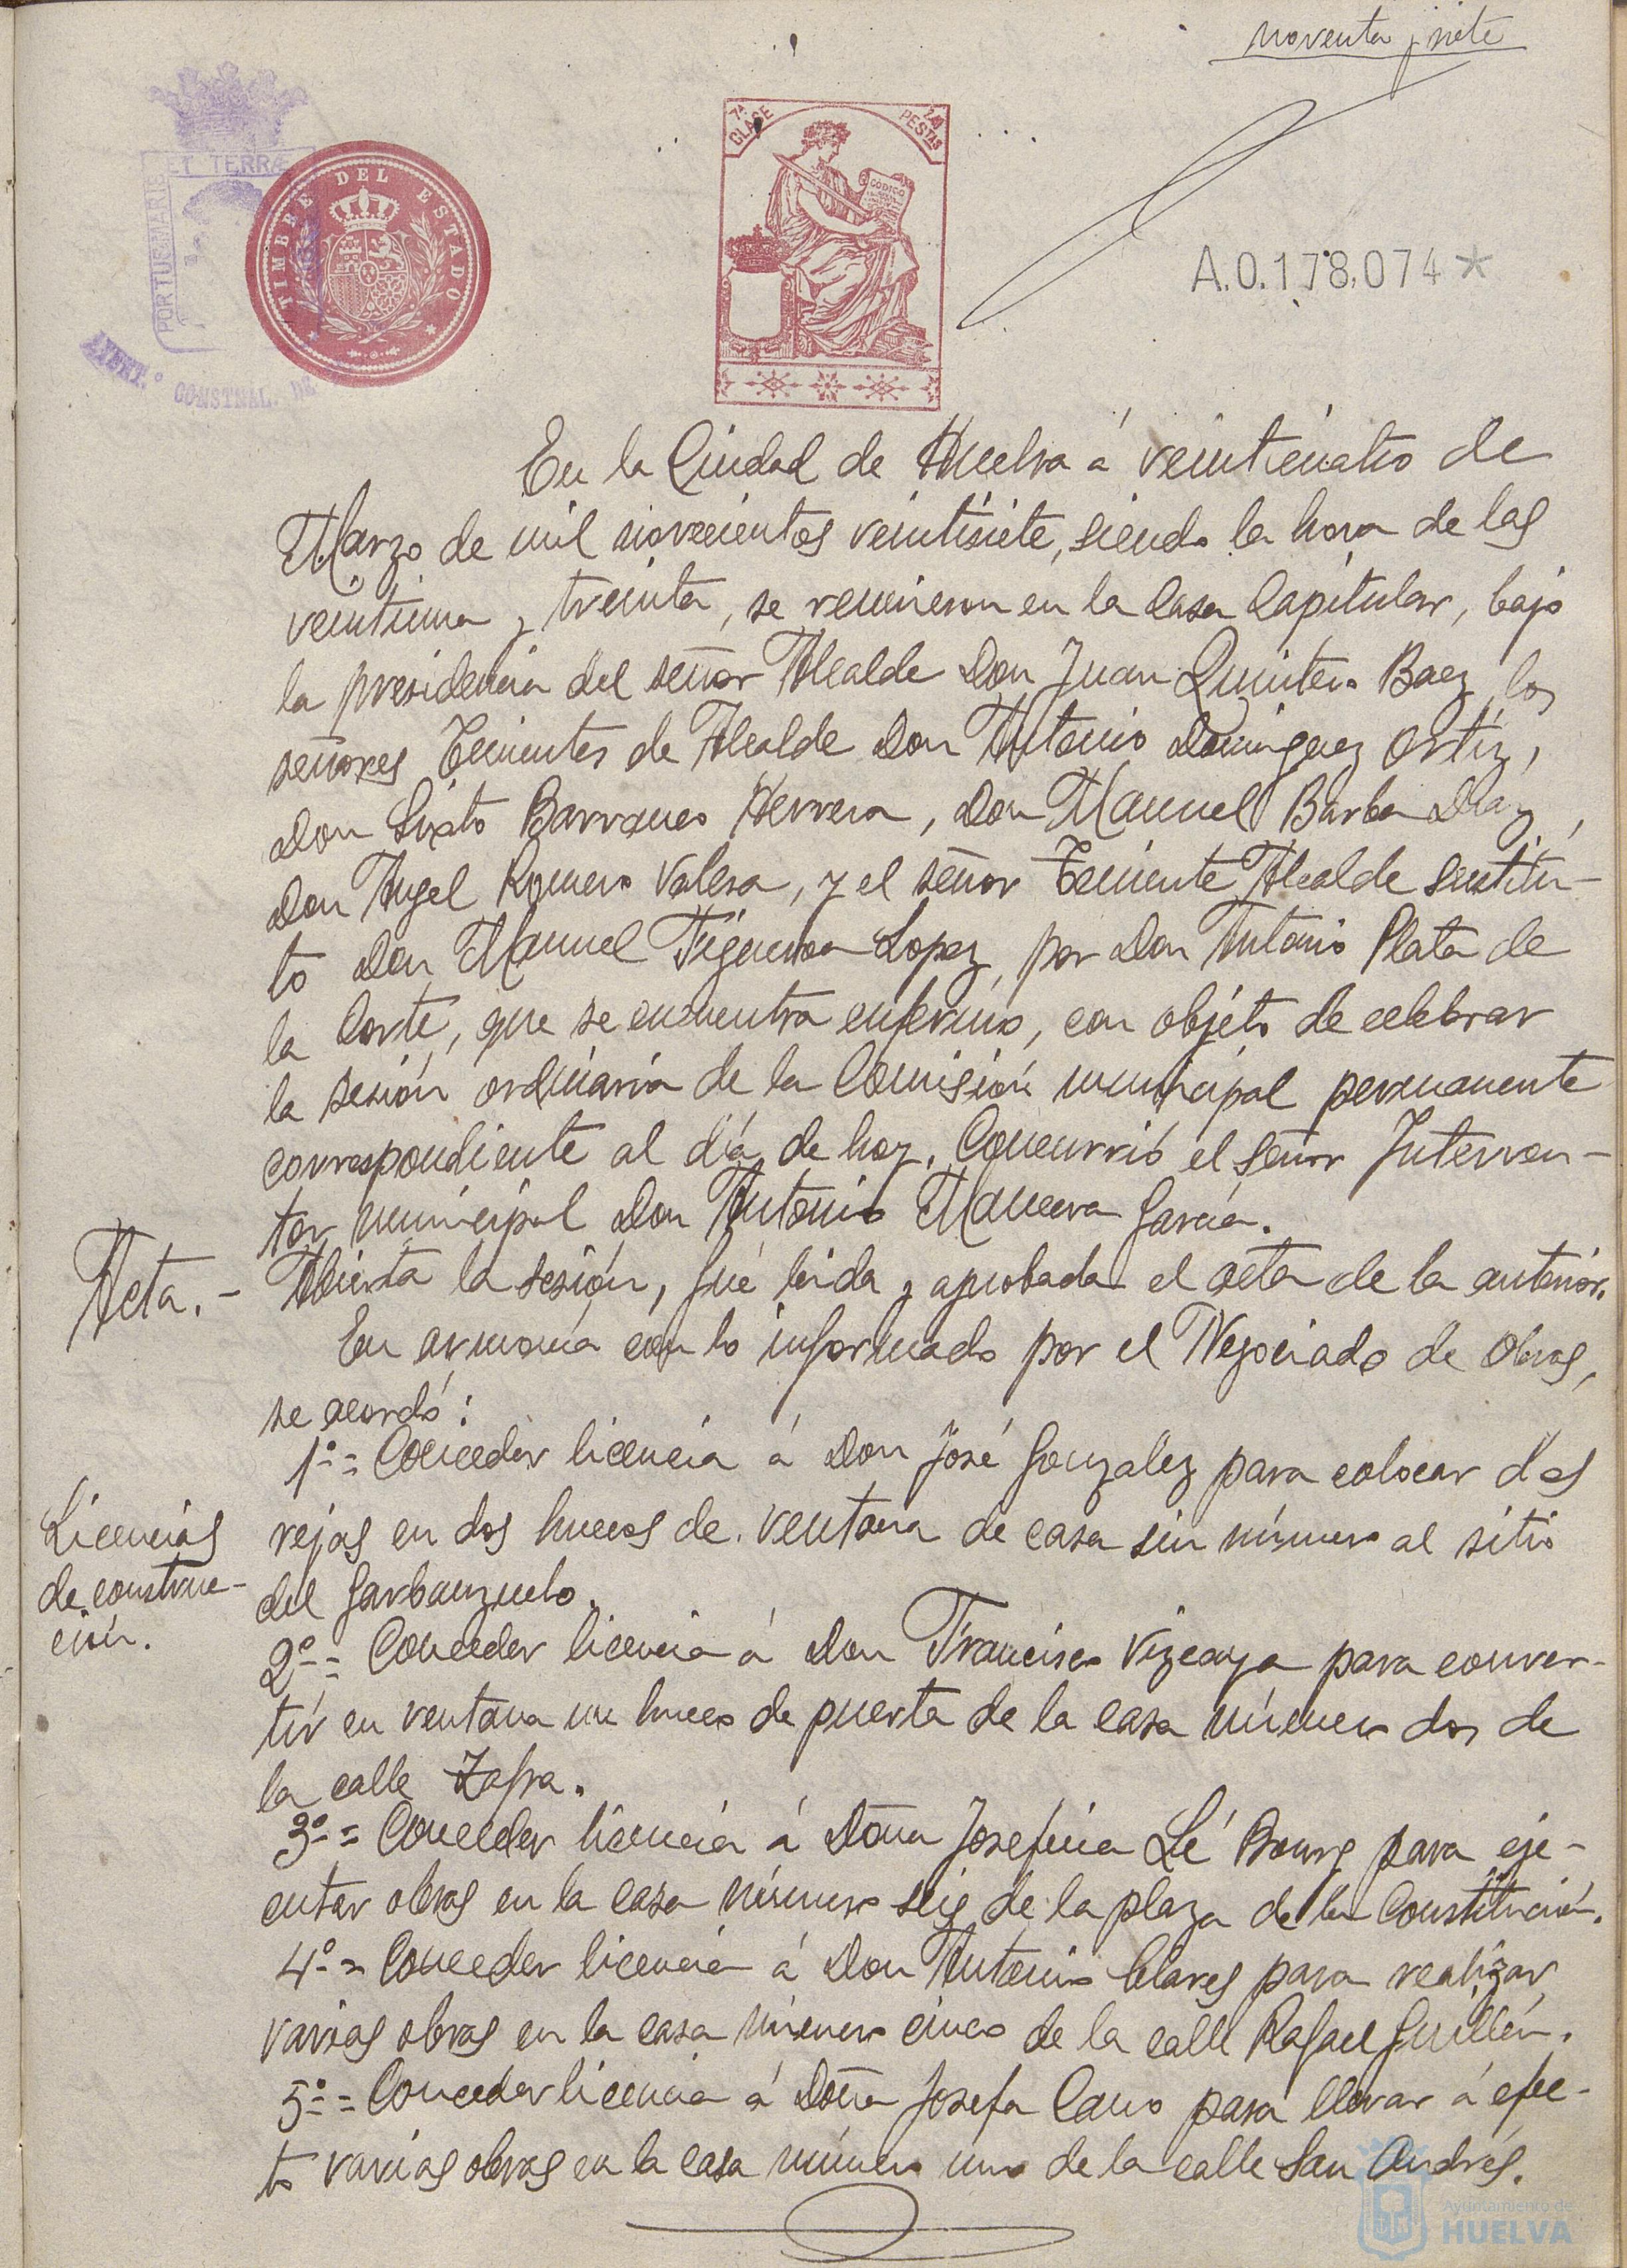 noventa y siete
PORTUS MARIS ET TERRÆ
AYUNT.º CONSTNAL. DE
TIMBRE DEL ESTADO
7ª CLASE
PESTAS
CODIGO
A.0.178.074*
En la Ciudad de Huelva á veinticuatro de
Marzo de mil novecientos veintisiete, siendo la hora de las
veintiuna y treinta, se reunieron en la Casa Capitular, bajo
la presidencia del señor Alcalde Don Juan Quintero Baez, los
señores Tenientes de Alcalde Don Antonio Dominguez Ortíz,
Don Sixto Barranco Herrera, Don Manuel Barba Diaz,
Don Angel Romero Valera, y el señor Teniente Alcalde sustitu-
to Don Manuel Figueroa Lopez, por Don Antonio Plata de
la Corte, que se encuentra enfermo, con objeto de celebrar
la sesión ordinaria de la Comisión municipal permanente
correspondiente al día de hoy. Concurrió el señor Interven-
tor municipal Don Antonio García.
Acta.- Abierta la sesión, fué leida y aprobada el acta de la anterior.
En armonía con lo informado por el Negociado de Obras,
se acordó:
1º = Conceder licencia á Don José Gonzalez para colocar dos
Licencias
de construc-
ción.
rejas en dos huecos de ventana de casa sin número al sitio
del Garbanzuelo.
2º = Conceder licencia á Don Francisco Vizcaya para conver-
tir en ventana un hueco de puerta de la casa número dos de
la calle Zafra.
3º = Conceder licencia á Doña Josefina Lé Bourg para eje-
cutar obras en la casa número seis de la plaza de la Constitución.
4º = Conceder licencia á Don Antonio Clares para realizar
varias obras en la casa número cinco de la calle Rafael Guillén.
5º = Conceder licencia á Doña Josefa Cano para llevar á efec-
to varias obras en la casa número uno de la calle San Andrés.
Ayuntamiento de
HUELVA